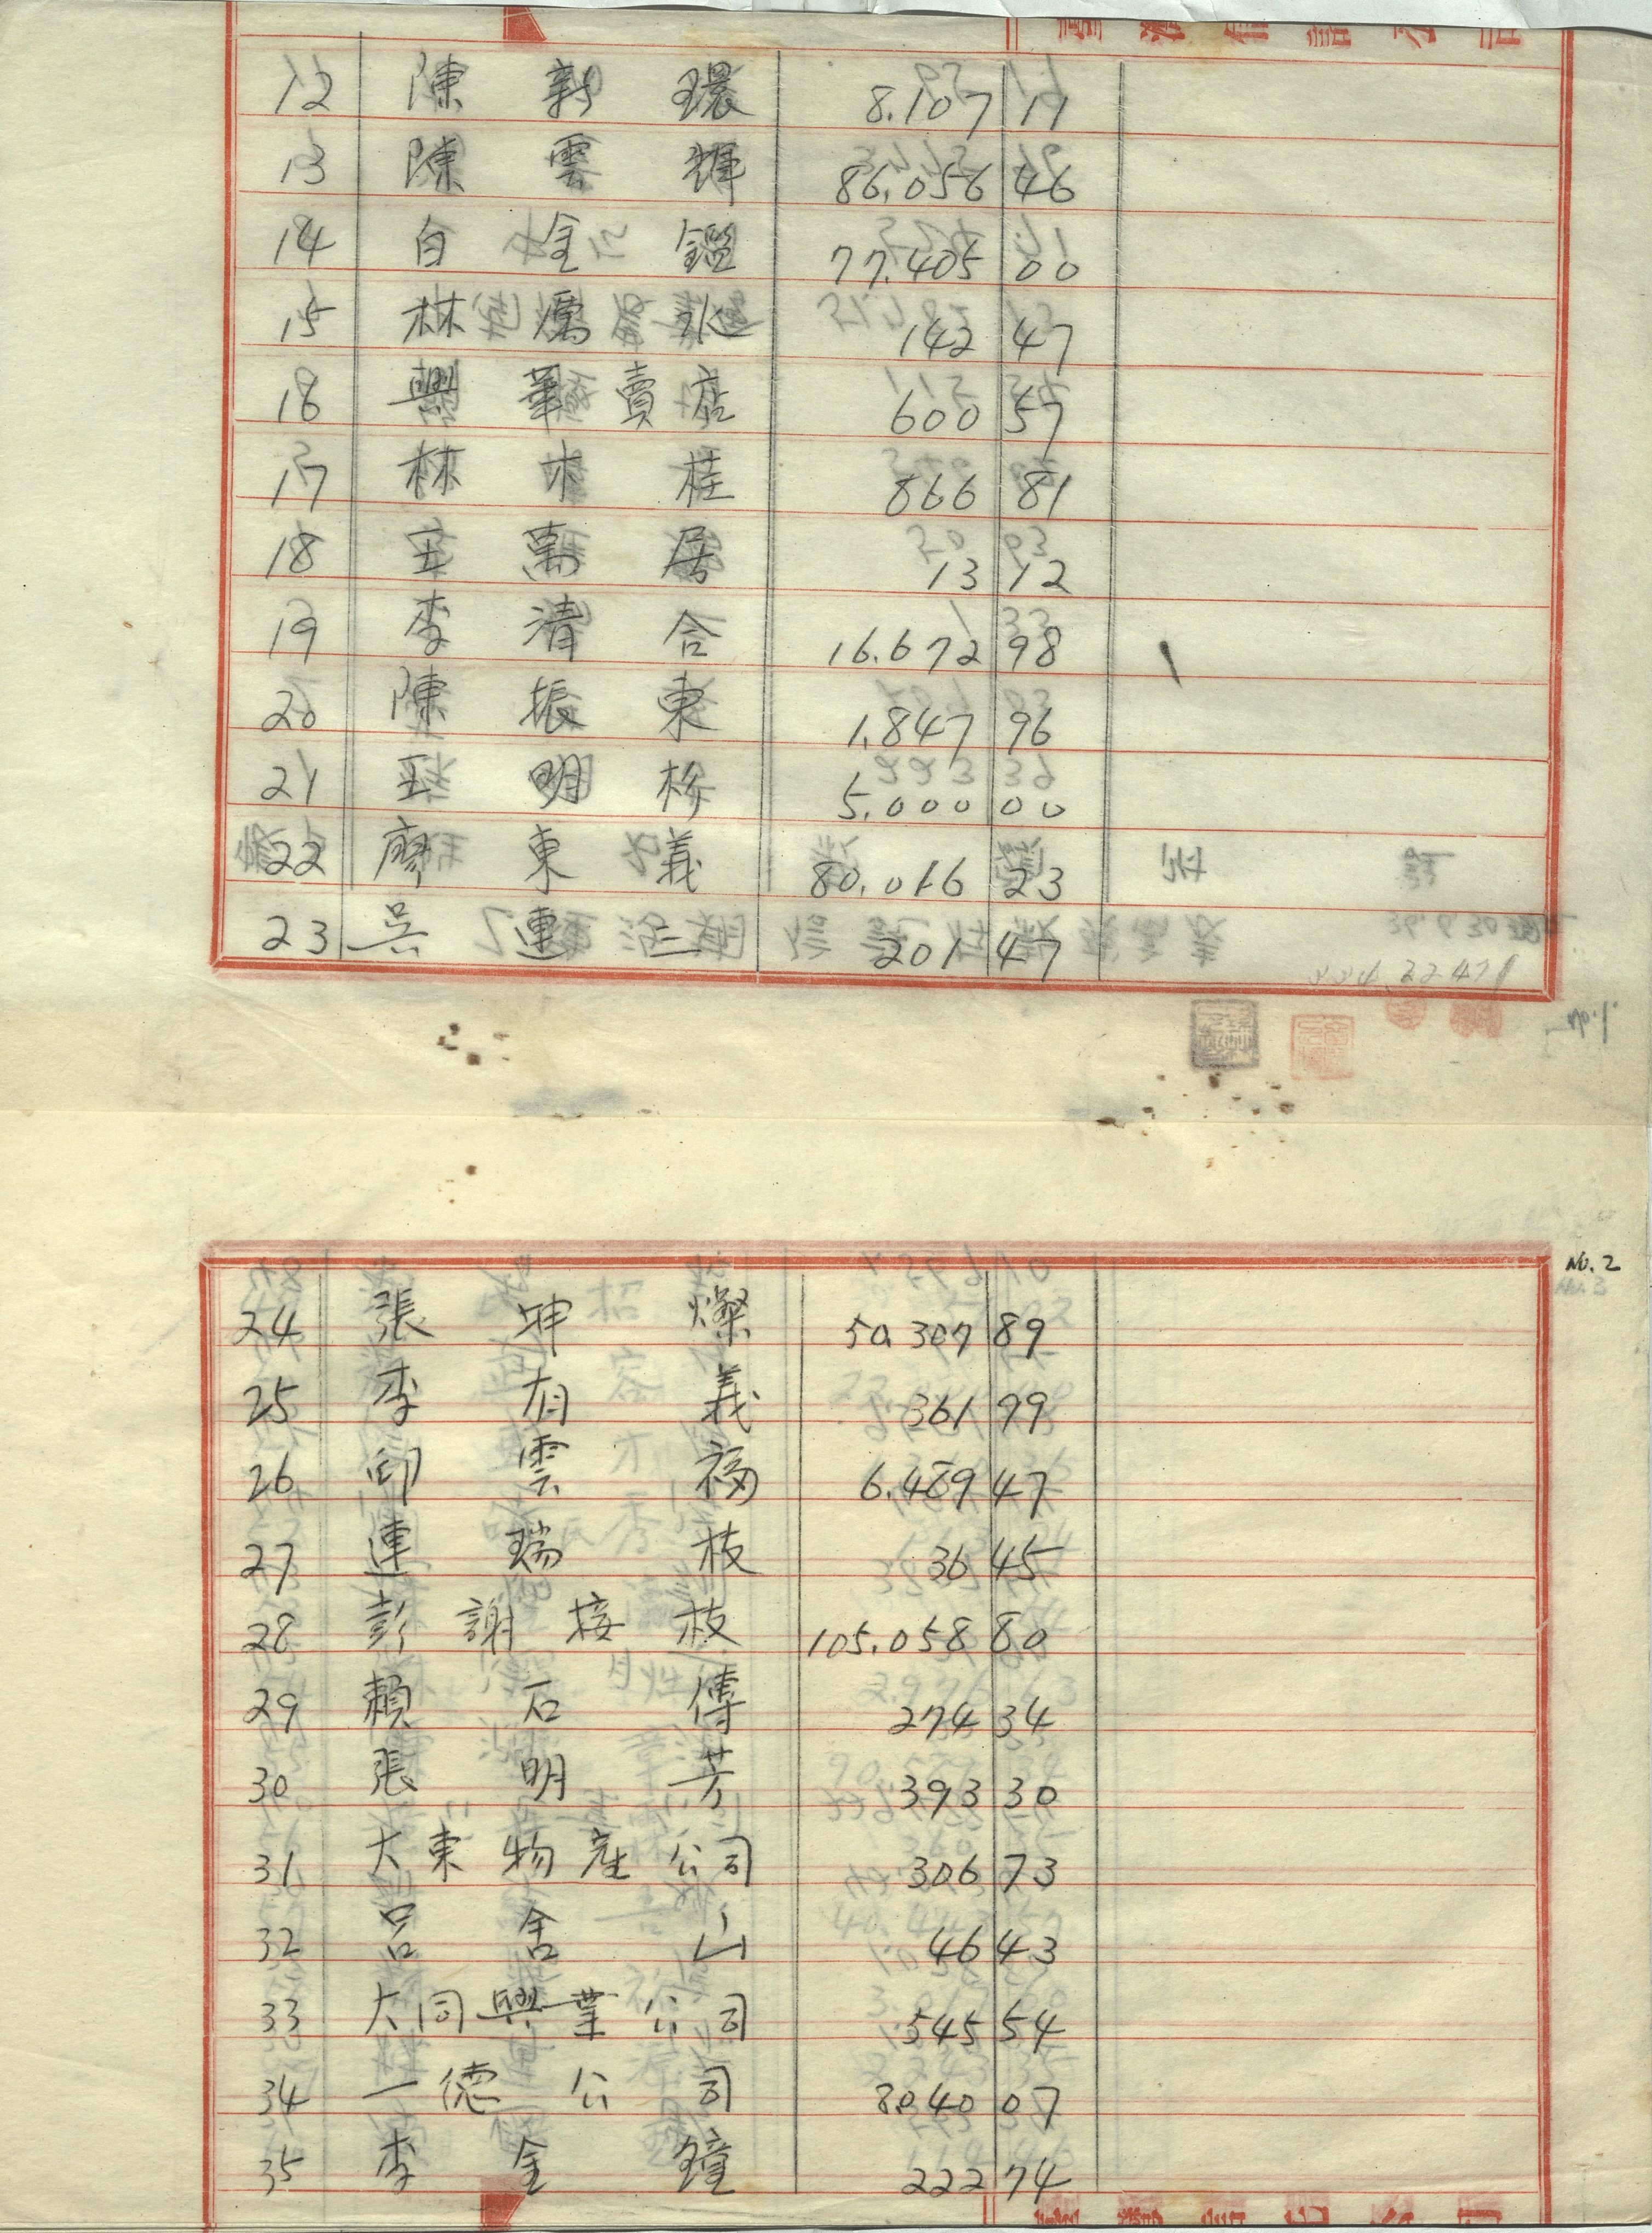 12 陳新環 8.107 11
13 陳雲輝 86.056 46
14 白金鑑 77.405 00
15 林 142 47
16 興華賣店 600 57
17 林木桂 866 81
18 王萬居 13 12
19 李清合 16.672 98
20 陳振東 1.847 96
21 王明 5.000 00
22 廖東義 80.016 23
23 吳連三 201 47
No.2
24 張坤燦 50.307 89
25 李有義 361 99
26 邱雲福 6.469 47
27 連瑞枝 36 45
28 彭謝接枝 105.058 80
29 賴石傳 274 34
30 張明芳 393 30
31 大東物産公司 306 73
32 呂舍山 46 43
33 大同興業公司 545 54
34 一德公司 8.040 07
35 李金鐘 222 74